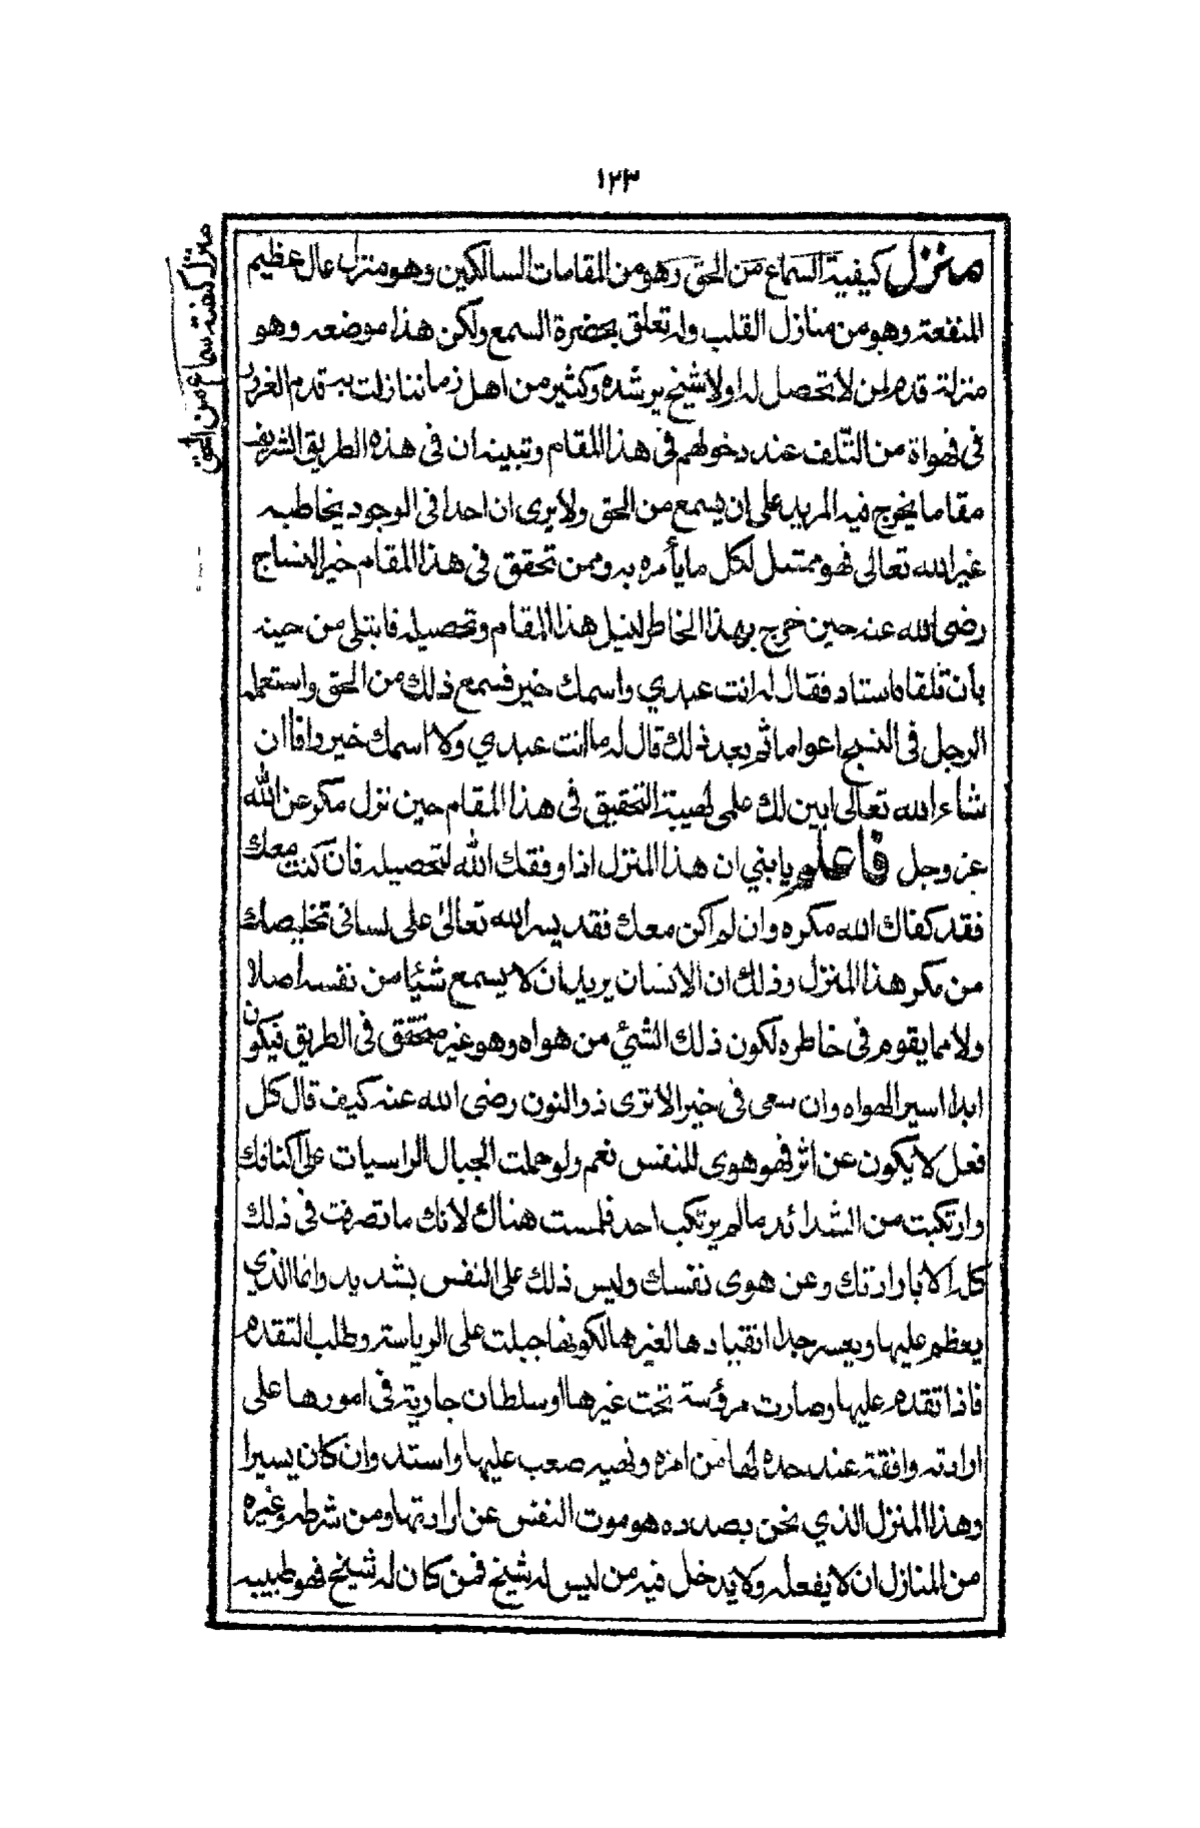 ١٢٣
منزل كيفية السماع من الحق وهو من المقامات السالكين وهو منزل عال عظيم
المنفعة وهو من منازل القلب وله تعلق بحضرة السمع ولكن هذا موضعه وهو
منزلة قدم لمن لا تحصل له اولا شيخ يرشده وكثير من اهل زماننا زلت به قدم الغرور
فى فهواة من التلف عند دخولهم فى هذا المقام وتبينه ان فى هذه الطريق الشريف
مقاما يخرج فيه المريد على ان يسمع من الحق ولا يرى ان احدا فى الوجود يخاطبه
غير الله تعالى فهو ممتثل لكل ما يأمره به وممن تحقق فى هذا المقام خير النساج
رضى الله عنه حين خرج بهذا الخاطر لنيل هذا المقام وتحصيله فابتلى من حينه
بأن تلقاه استاد فقال له انت عبدي واسمك خير فسمع ذلك من الحق واستعمله
الرجل فى النسج اعواما ثم بعد ذلك قال له ما انت عبدي ولا اسمك خير وانا ان
شاء الله تعالى ابين لك على لصيبة التحقيق فى هذا المقام حين نزل مكر عن الله
عز وجل فاعلم يا بني ان هذا المنزل اذا وفقك الله لتحصيله فان كنت معك
فقد كفاك الله مكره وان لم اكن معك فقد يسر الله تعالى على لسانى تخليصك
من مكر هذا المنزل وذلك ان الانسان يريد ان لا يسمع شئيا من نفسه اصلا
ولا مما يقوم فى خاطره لكون ذلك الشئي من هواه وهو غير متحقق فى الطريق فيكون
ابدا اسير الهواه وان سعى فى خير الا ترى ذو النون رضى الله عنه كيف قال كل
فعل لا يكون عن اثر فهو هوى للنفس نعم ولو حملت الجبال الراسيات على اكنافك
وارتكبت من الشدائد ما لم يرتكب احد فلست هناك لانك ما تصرفت فى ذلك
كله الا بارادتك وعن هوى نفسك وليس ذلك على النفس بشديد وانما الذي
يعظم عليها ويعسر جدا انقيادها لغيرها لكونها جبلت على الرياسة وطلب التقدم
فاذا تقدم عليها وصارت مرؤسة تحت غيرها او سلطان جارية فى امورها على
ارادته وافقة عند حده لها من امره ونهيه صعب عليها واستد وان كان يسيرا
وهذا المنزل الذي نحن بصدده هو موت النفس عن ارادتها ومن شرطه وغيره
من المنازل ان لا يفعله ولا يدخل فيه من ليس له شيخ فمن كان له شيخ فهو طبيبه
منزل كيفية سماع من الحق